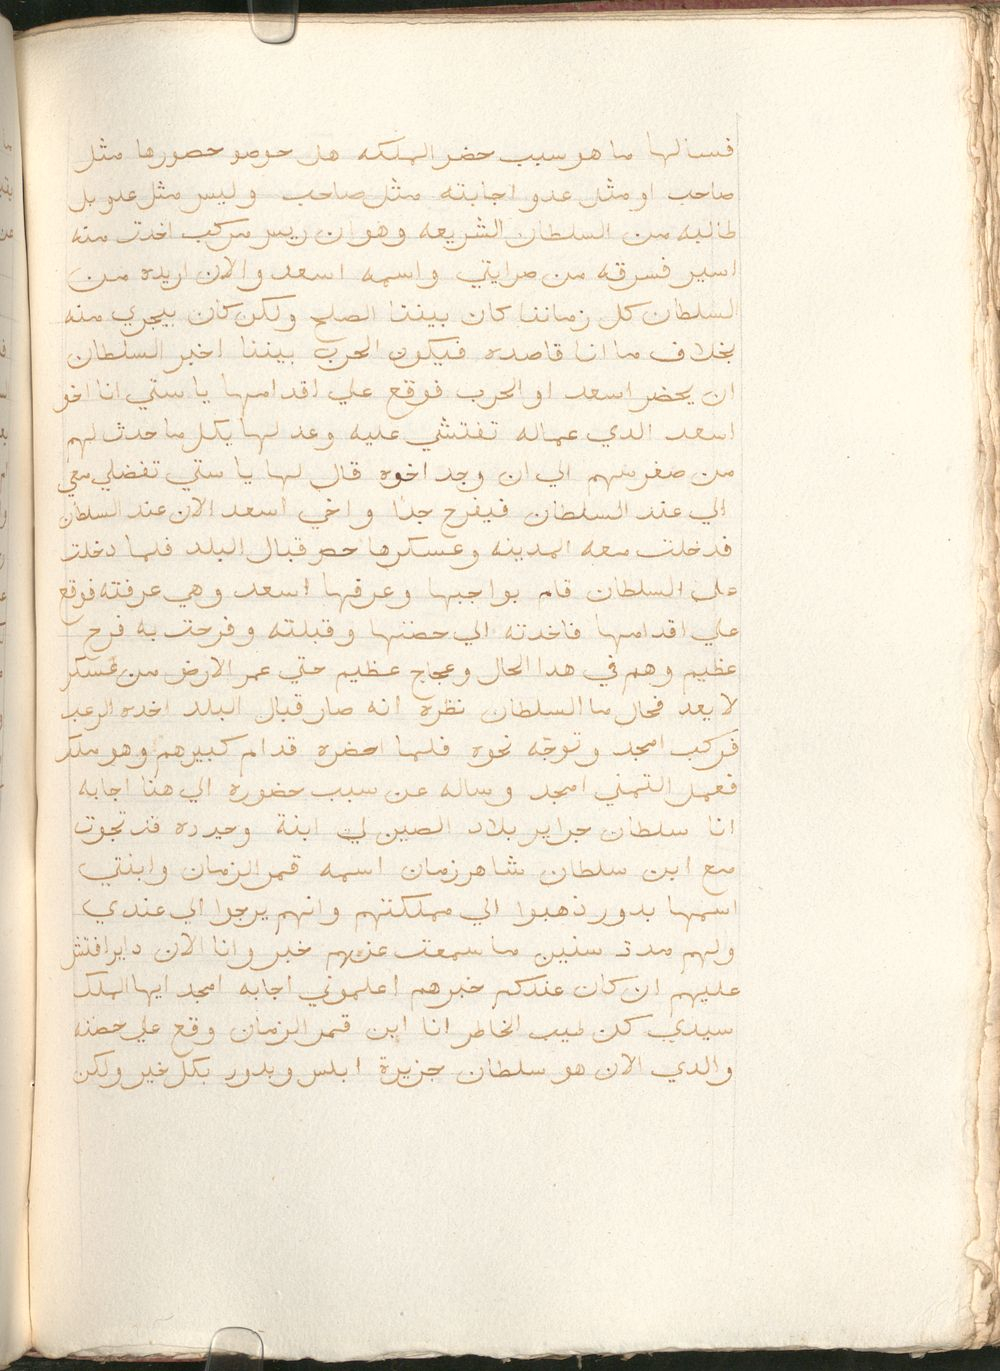 فسالها ما هو سبب حضر الملكه هل حوصو حصورها مثل
صاحب او مثل عدو اجابته مثل صاحب وليس مثل عدو بل
طالبه من السلطان الشريعه وهو ان ريس مركب اخدت منه
اسير فسرقه من صرايتي واسمه اسعد والان اريده من
السلطان كل زماننا كان بيننا الصلح ولكن كان بيجري منه
بخلاف ما انا قاصده فيكون الحرب بيننا اخبر السلطان
ان يحضر اسعد او الحرب فوقع علي اقدامها يا ستي انا اخو
اسعد الدي عماله تفتشي عليه وعد لها بكل ما حدث لهم
من صغرهم الي ان وجد اخوه قال لها يا ستي تفضلي معي
الي عند السلطان فيفرح جدًا واخي اسعد الان عند السلطان
فدخلت معه المدينه وعسكرها حصر قبال البلد فلما دخلت
علي السلطان قام بواجبها وعرفها اسعد وهي عرفته فوقع
علي اقدامها فاخدته الي حضنها وقبلته وفرحت به فرح
عظيم وهم في هدا الحال وعجاج عظيم حتي عمر الارض من عسكر
لا يعد فحال ما السلطان نظره انه صار قبال البلد اخده الرعب
فركب امجد وتوجّه نحوه فلما احضره قدام كبيرهم وهو ملك
فعمل التمني امجد وساله عن سبب حضوره الي هنا اجابه
انا سلطان جراير بلاد الصين لي ابنة وحيدره قد تجوت
مع ابن سلطان شاهرزمان اسمه قمر الزمان وابنتي
اسمها بدور ذهبوا الي مملكتهم وانهم يرجوا الي عندي
ولهم مدت سنين ما سمعت عنهم خبر وانا الان داير افتش
عليهم ان كان عندكم خبرهم اعلموني اجابه امجد ايها الملك
سيدي كن طيب الخاطر انا ابن قمر الزمان وقع علي حضنه
والدي الان هو سلطان جزيرة ابلس وبدور بكل خير ولكن